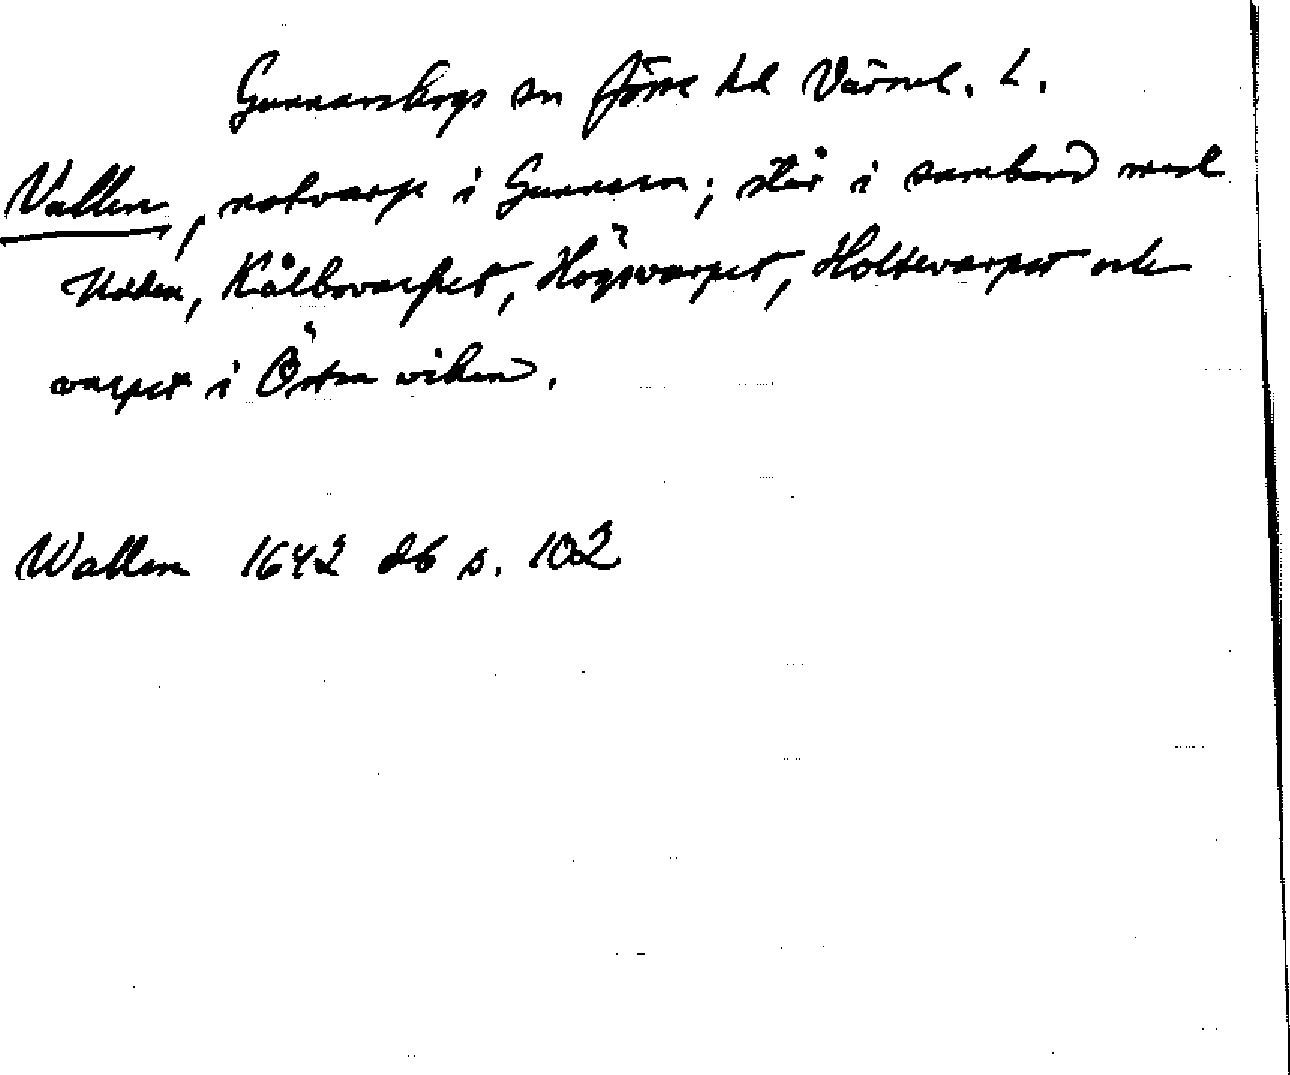 Gunnarskogs sn Jösse hd Värml. l.
Vallen, notvarp i Gunnarn; står i samband med
Udden, Kålbovarpet, Högsvarpet, Holtsevarpet och
varpet i Östra viken.
Wallen 1642 db s. 102